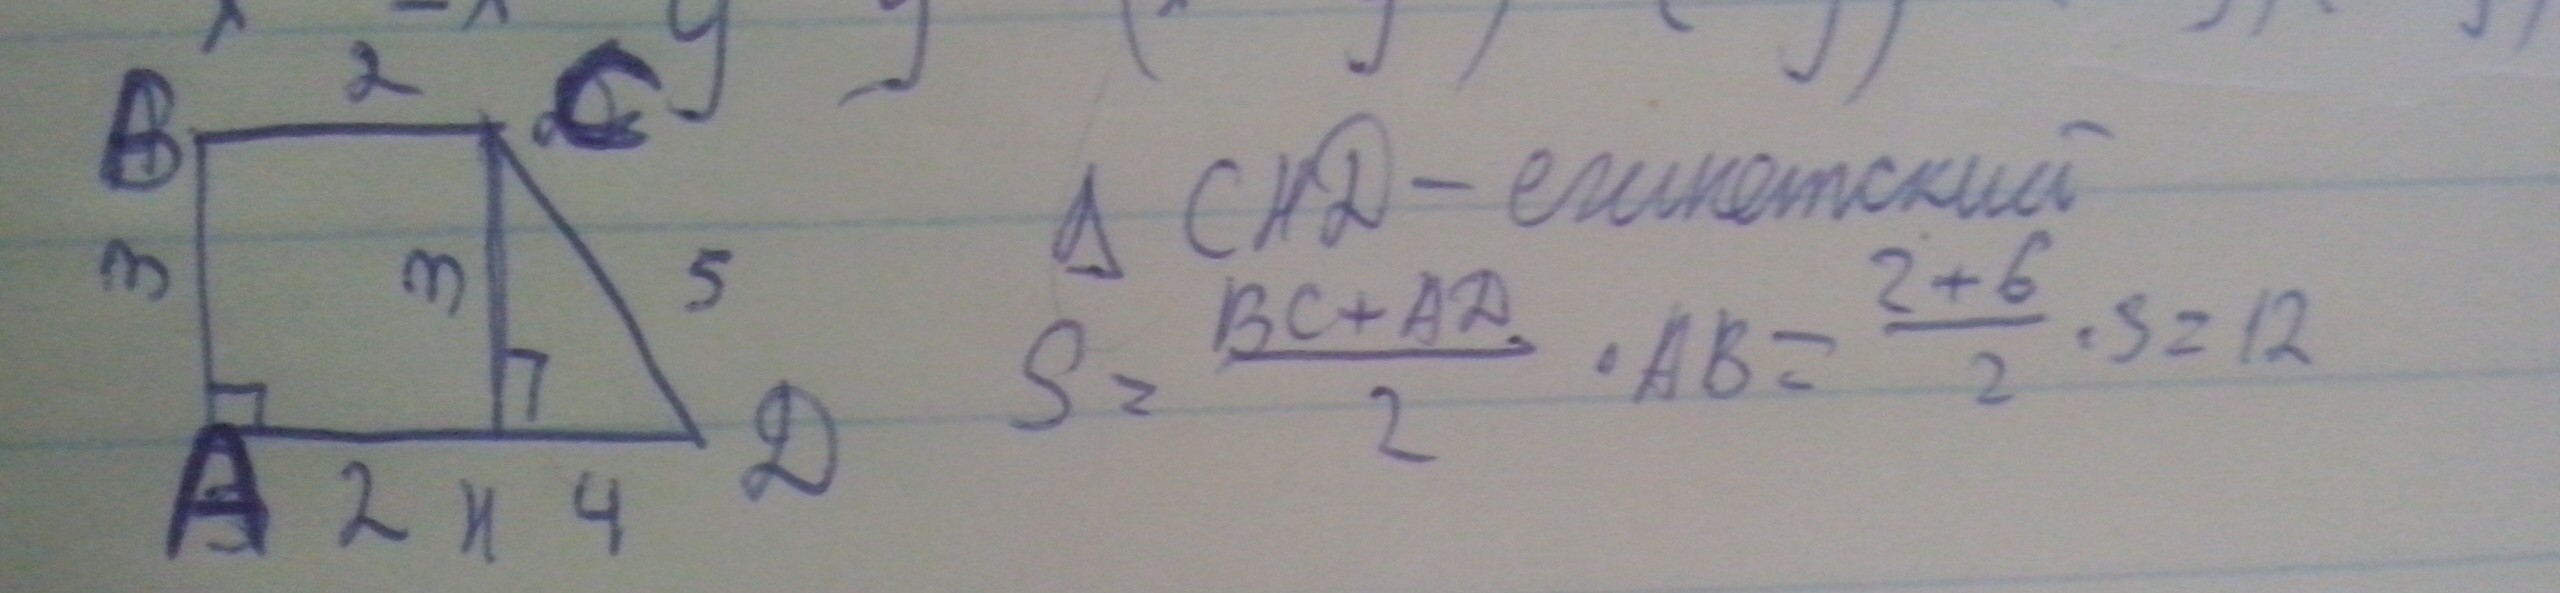 2
B C
3 3 5
A 2 H 4 D
Δ CHD - египетский
S = BC + AD / 2 · AB = 2 + 6 / 2 · 3 = 12